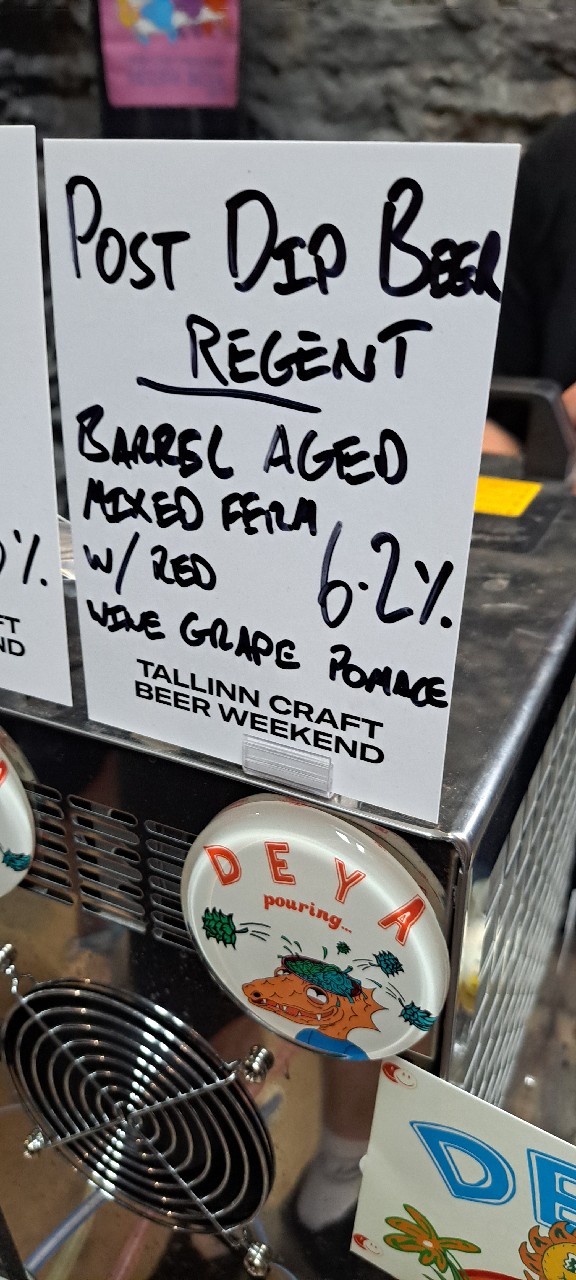 POST DIP BEER
REGENT
BARREL AGED
MIXED FERM
W/ RED
6.2%
WINE GRAPE POMACE
TALLINN CRAFT
BEER WEEKEND
%
FT
ND
DEYA
pouring...
DE